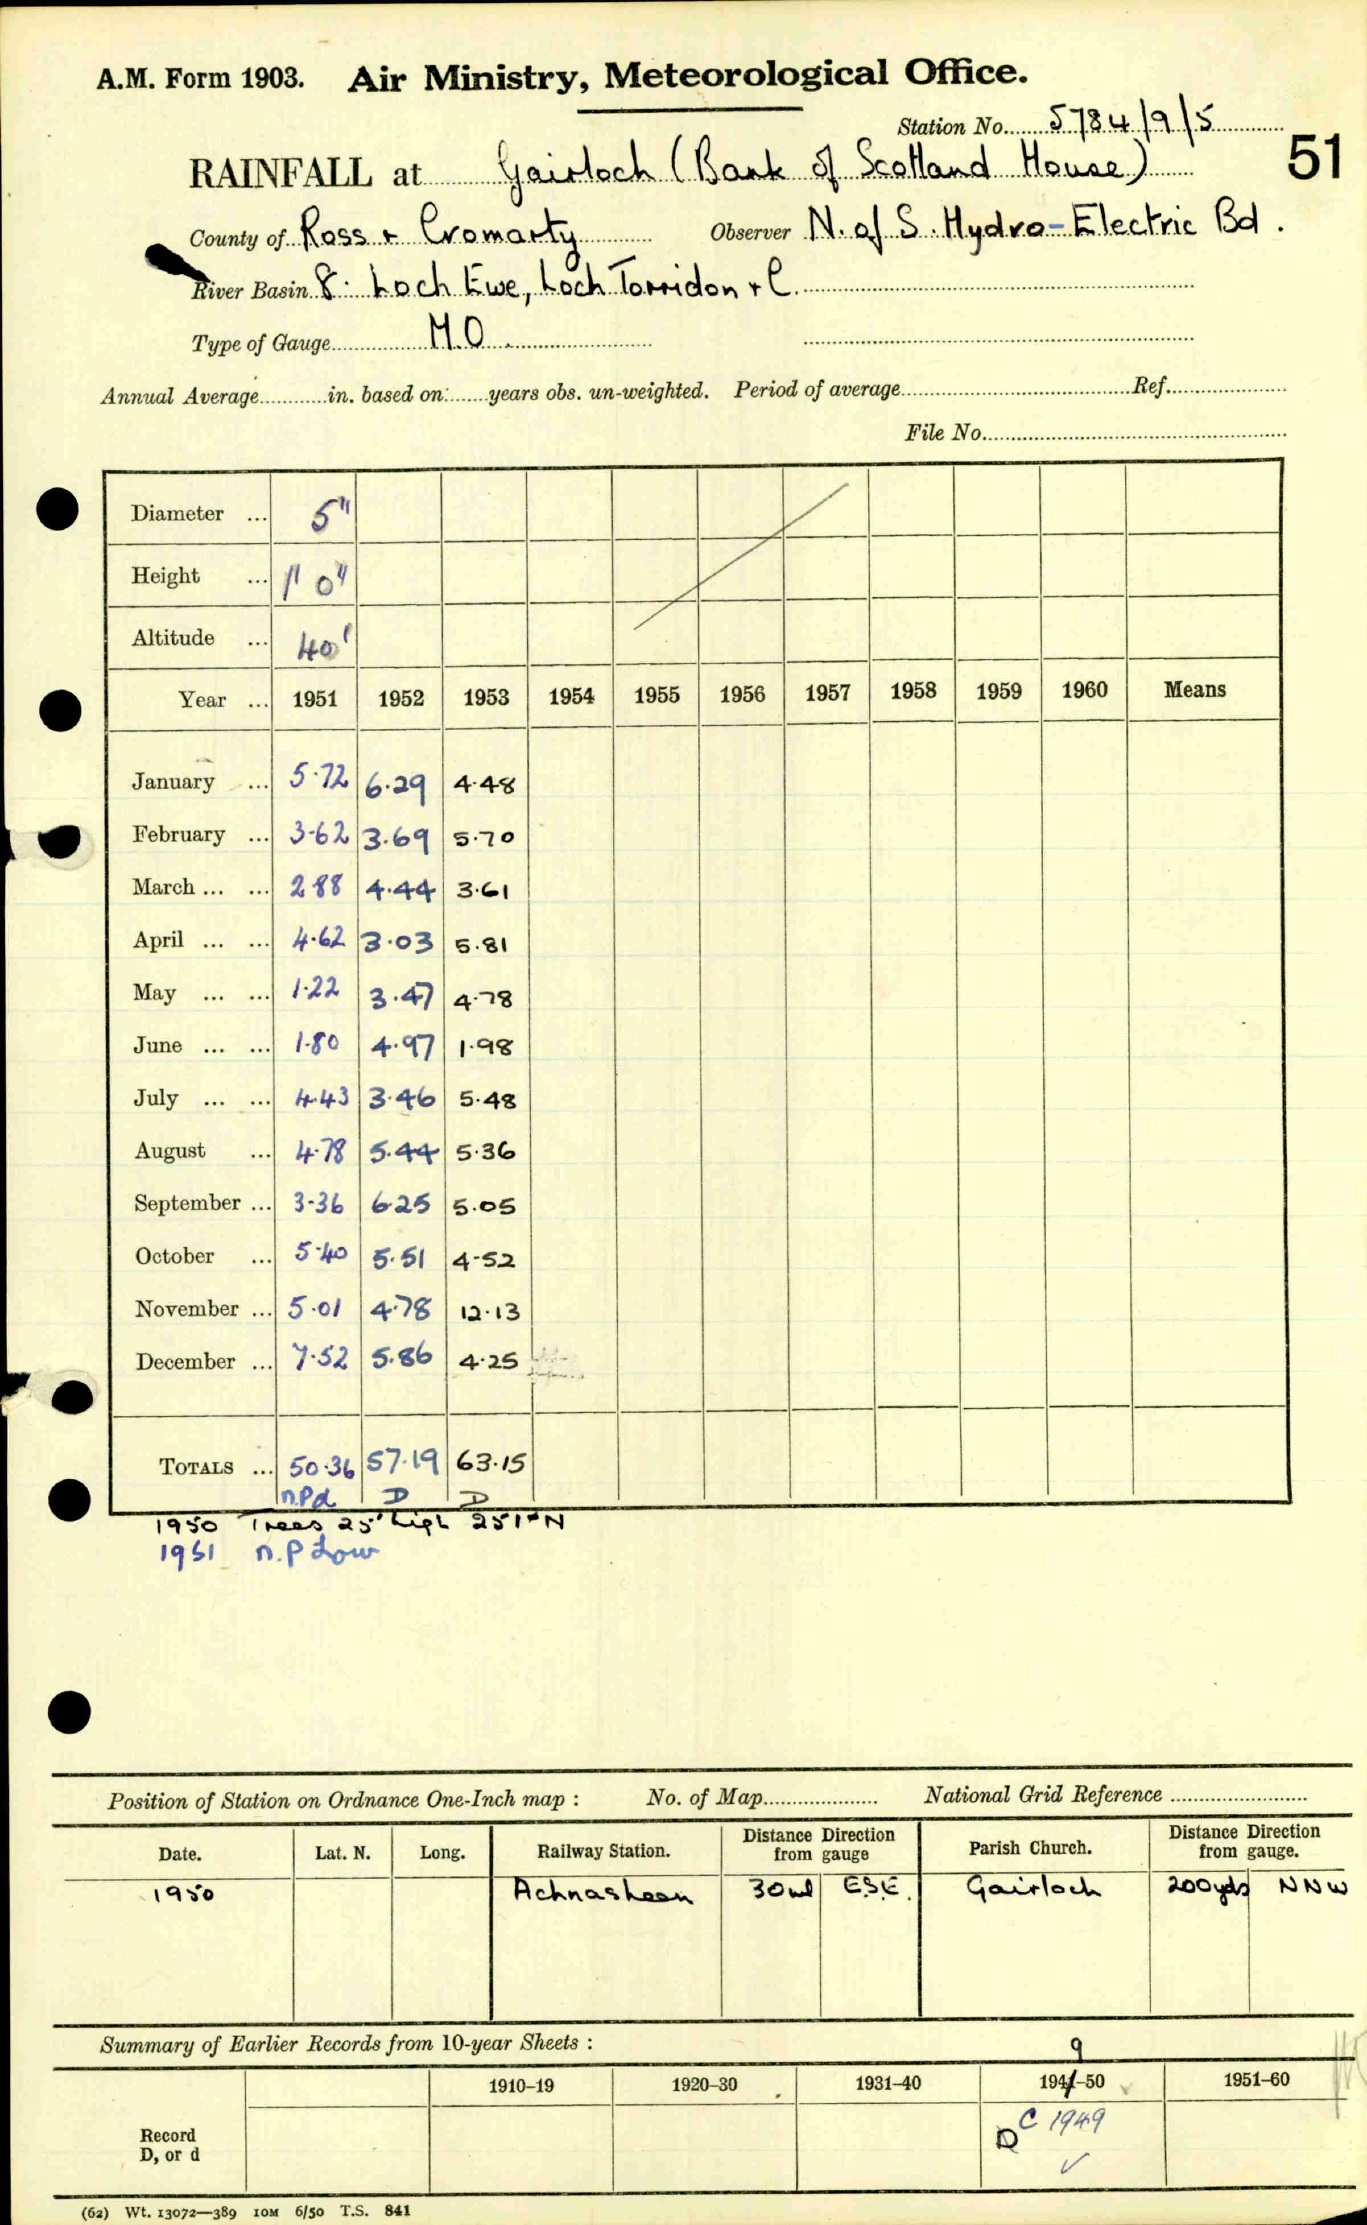 A.M. Form 1903. Air Ministry, Meteorological Office.
Station No. 5784/9/5
RAINFALL at Gairloch (Bank of Scotland House) 51
County of Ross + Cromarty Observer N. of S. Hydro-Electric Bd.
River Basin 8. Loch Ewe, Loch Torridon + C.
Type of Gauge M.O.
Annual Average in. based on years obs. un-weighted. Period of average Ref.
File No.
Diameter ... 5"
Height ... 1' 0"
Altitude ... 40'
Year ... 1951 1952 1953 1954 1955 1956 1957 1958 1959 1960 Means
January ... 5.72 6.29 4.48
February ... 3.62 3.69 5.70
March ... ... 2.88 4.44 3.61
April ... ... 4.62 3.03 5.81
May ... ... 1.22 3.47 4.78
June ... ... 1.80 4.97 1.98
July ... ... 4.43 3.46 5.48
August ... 4.78 5.44 5.36
September ... 3.36 6.25 5.05
October ... 5.40 5.51 4.52
November ... 5.01 4.78 12.13
December ... 7.52 5.86 4.25
TOTALS ... 50.36 57.19 63.15
n.Pd D D
1950 Trees 25' high N
1951 n.P Low
Position of Station on Ordnance One-Inch map : No. of Map National Grid Reference
Date. Lat. N. Long. Railway Station. Distance Direction from gauge Parish Church. Distance Direction from gauge.
1950 Achnasheen 30ml E.S.E. Gairloch 200yds NNW
Summary of Earlier Records from 10-year Sheets :
9
1910-19 1920-30 1931-40 1941-50 1951-60
Record
D, or d
D C 1949
(62) Wt. 13072—389 10M 6/50 T.S. 841